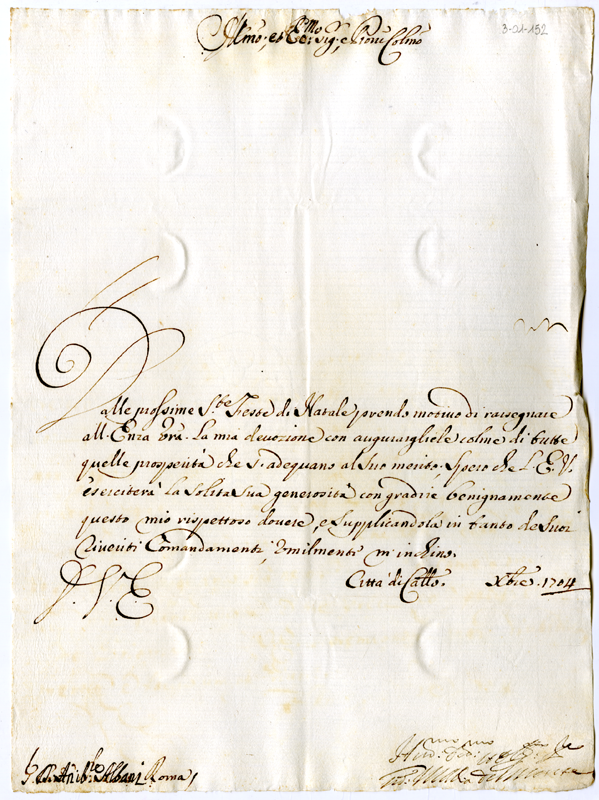 Illmo, et Eccmo Sig.r e Pron Colmo
3-01-152
Dalle prossime S.te Feste di Natale prendo motivo di rassegnare
all. Enza Vra. La mia devozione con augurargliele colme di tutte
quelle prosperità che s. adequano al suo merito. Spero che L. E. V.
eserciterà La solita sua generosità con gradire benignamente
questo mio rispettoso dovere, e Supplicandola in tanto de Suoi
riveriti Comandamenti, Umilmente m'inchino.
Città di Castlo. Xbre. 1704
D. V. E.
Albani Roma